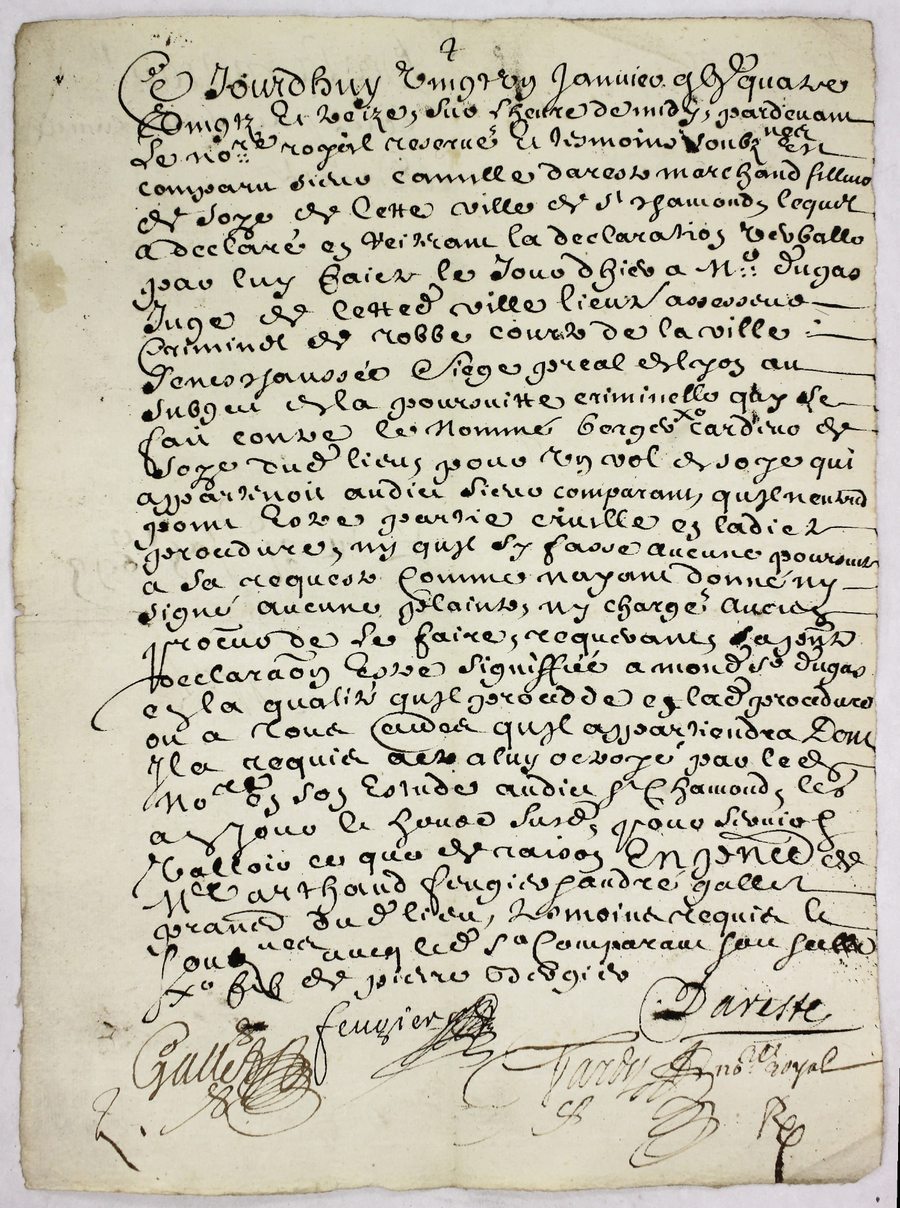 Ce Jourdhuy vingt un Janvier quatre
Vingtz et treize, sur lheure de midy, pardevant
Le no.re royal reservé et tesmoins soubz.nes est
comparu sieur camille dareste marchand filleur
de soye de cette ville de st chamond, lequel
a declaré en reitterant la declaration verballe
par luy faicte le jour dhier a Mr. dugas
Juge de cette de ville lieut assesseur
Criminel de robbe courte de la ville
Seneschaussée Siege pre.al de lyon au
subget de la poursuitte criminelle quy se
fait contre le Nommé cardeur de
Soye dud lieu, pour un vol de soye qui
appartenoit audict sieur comparant, quil nentend
point estre partie civille en ladict
procedure, ny quil sy fasse aucune poursuite
a sa requeste Comme nayant donné ny
signé aucune plainte, ny chargé aucun
procur de le faire, requerant, la pnte
declaraon estre signiffiée a mond sr dugas
en la qualité quil procedde en lad procedure
ou a tous autres quil appartiendra Dont
Il a requis acte a luy octroyé par led
No.re en son estude audict st Chamond, les
an Jour et heure susd, pour servir et
Valloir ce que de raison En pnce de
Me arthaud feugier, andré gallet
pran dud lieu, tesmoins requis et
soub.nes avec led sr Comparant
de pierre
Dareste
feugier
Gallet
Tardy no.re royal